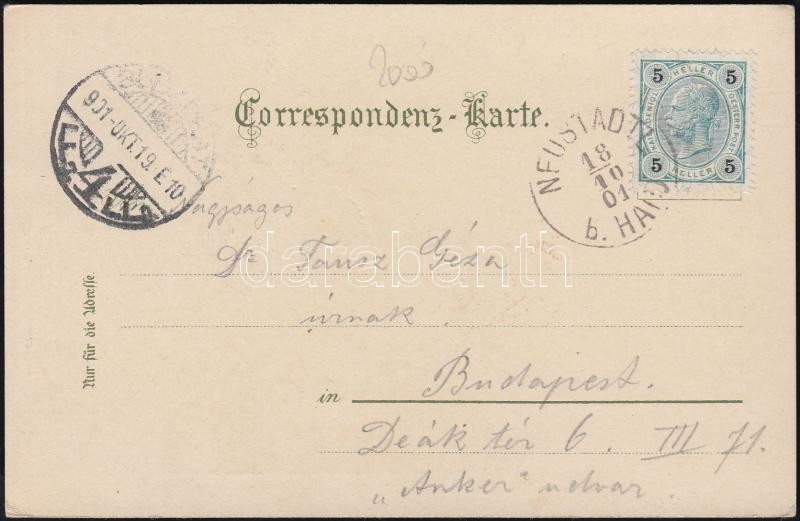 Correspondenz-Karte.
5 HELLER 5
KAIS. KÖNIGL.
OESTERR. POST
5 HELLER 5
NEUSTADTL
18
10
01
b. HAIDA
901-OKT.19. E 10
4
Nagyságos
Dr Tausz Géza
úrnak
in Budapest.
Deák tér 6. III 71.
„Anker" udvar.
Nur für die Adresse
darabanth